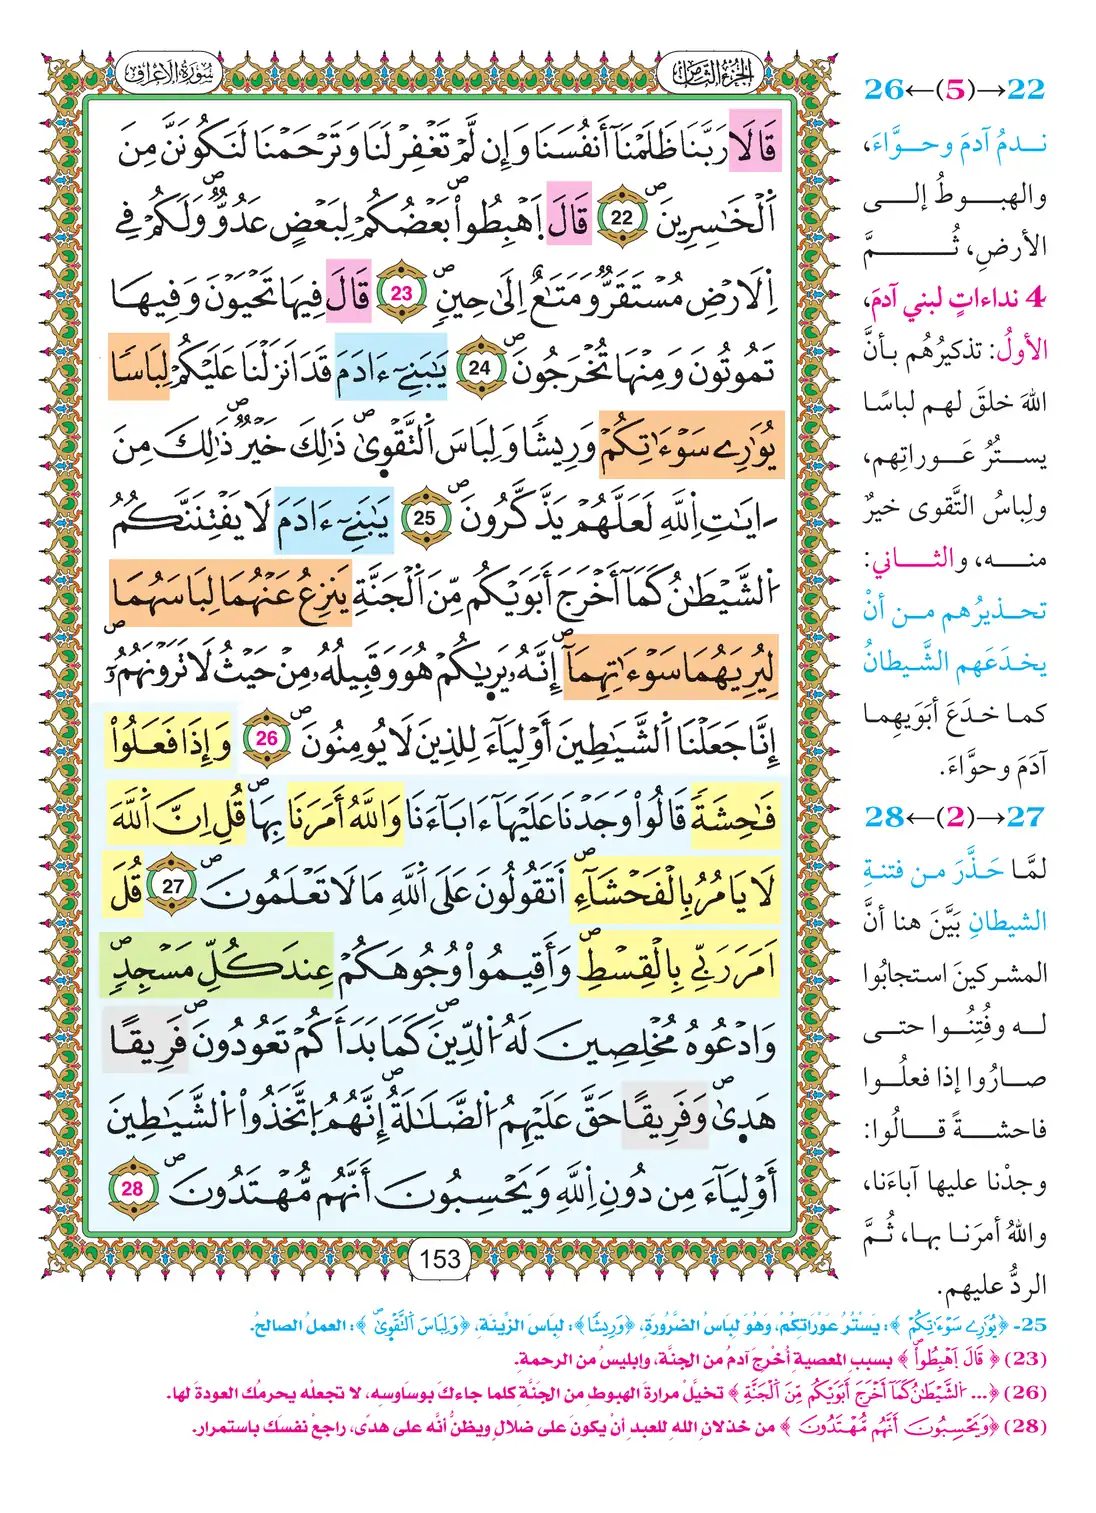 سُورَةُ الْأَعْرَافِ
الجُزْءُ الثَّامِنُ
قَالَا رَبَّنَا ظَلَمْنَا أَنفُسَنَا وَإِن لَّمْ تَغْفِرْ لَنَا وَتَرْحَمْنَا لَنَكُونَنَّ مِنَ
اَ۬لْخَٰسِرِينَۖ 22 قَالَ اَ۪هْبِطُواْۖ بَعْضُكُمْ لِبَعْضٍ عَدُوّٞۖ وَلَكُمْ فِي
اِ۬لَارْضِ مُسْتَقَرّٞ وَمَتَٰعٌ اِلَىٰ حِينٖۖ 23 قَالَ فِيهَا تَحْيَوْنَ وَفِيهَا
تَمُوتُونَ وَمِنْهَا تُخْرَجُونَۖ 24 يَٰبَنِےٓ ءَادَمَ قَدَ اَنزَلْنَا عَلَيْكُمْ لِبَاسٗا
يُوَٰرِے سَوْءَٰتِكُمْ وَرِيشٗا وَلِبَاسَ اَ۬لتَّقْوَىٰۖ ذَٰلِكَ خَيْرٞۖ ذَٰلِكَ مِنَ
اٰيَٰتِ اِ۬للَّهِ لَعَلَّهُمْ يَذَّكَّرُونَۖ 25 يَٰبَنِےٓ ءَادَمَ لَا يَفْتِنَنَّكُمُ
اُ۬لشَّيْطَٰنُ كَمَآ أَخْرَجَ أَبَوَيْكُم مِّنَ اَ۬لْجَنَّةِ يَنزِعُ عَنْهُمَا لِبَاسَهُمَا
لِيُرِيَهُمَا سَوْءَٰتِهِمَآۖ إِنَّهُۥ يَر۪يٰكُمْ هُوَ وَقَبِيلُهُۥ مِنْ حَيْثُ لَا تَرَوْنَهُمُۥٓۖ
إِنَّا جَعَلْنَا اَ۬لشَّيَٰطِينَ أَوْلِيَآءَ لِلذِينَ لَا يُومِنُونَۖ 26 وَإِذَا فَعَلُواْ
فَٰحِشَةٗ قَالُواْ وَجَدْنَا عَلَيْهَآ ءَابَآءَنَا وَاللَّهُ أَمَرَنَا بِهَاۖ قُلِ اِنَّ اَ۬للَّهَ
لَا يَامُرُ بِالْفَحْشَآءِۖ اَتَقُولُونَ عَلَى اَ۬للَّهِ مَا لَا تَعْلَمُونَۖ 27 قُلَ
اَمَرَ رَبِّي بِالْقِسْطِۖ وَأَقِيمُواْ وُجُوهَكُمْ عِندَ كُلِّ مَسْجِدٖۖ
وَادْعُوهُ مُخْلِصِينَ لَهُ اُ۬لدِّينَۖ كَمَا بَدَأَكُمْ تَعُودُونَۖ فَرِيقاً
هَد۪ىٰۖ وَفَرِيقاً حَقَّ عَلَيْهِمُ اُ۬لضَّلَٰلَةُۖ إِنَّهُمُ اُ۪تَّخَذُواْ اُ۬لشَّيَٰطِينَ
أَوْلِيَآءَ مِن دُونِ اِ۬للَّهِ وَيَحْسِبُونَ أَنَّهُم مُّهْتَدُونَۖ 28
153
22→(5)←26
نـدمُ آدمَ وحـوَّاءَ،
والهبــوطُ إلــى
الأرضِ، ثُــمَّ
4 نداءاتٍ لبني آدمَ،
الأولُ: تذكيرُهُم بـأنَّ
اللهَ خلقَ لهم لباسًا
يستُرُ عَـوراتِهم،
ولِباسُ التَّقوى خيرٌ
منه، والثــاني:
تحـذيرُهم مـن أنْ
يخدَعَهم الشَّيطانُ
كمـا خـدَعَ أبَوَيهِمـا
آدَمَ وحوَّاءَ.
27→(2)←28
لمَّـا حَـذَّرَ مـن فتنةِ
الشيطانِ بيَّنَ هنا أنَّ
المشركينَ استجابُوا
لـه وفُتِنُـوا حتـى
صـارُوا إذا فعلُـوا
فاحشـةً قـالُوا:
وجدْنا عليها آباءَنا،
واللهُ أمرَنـا بهـا، ثُـمَّ
الردُّ عليهم.
25- ﴿يُوَٰرِے سَوْءَٰتِكُمْ﴾: يَسْتُرُ عَوْرَاتِكُمْ، وَهُوَ لِبَاسُ الضَّرُورَةِ، ﴿وَرِيشٗا﴾: لِبَاسَ الزِّينَةِ، ﴿وَلِبَاسَ اَ۬لتَّقْوَىٰۖ﴾: العملُ الصالحُ.
(23) ﴿قَالَ اَ۪هْبِطُواْۖ﴾ بسببِ المعصيةِ أُخْرِجَ آدمُ من الجنَّة، وإبليسُ من الرحمةِ.
(26) ﴿... اَ۬لشَّيْطَٰنُ كَمَآ أَخْرَجَ أَبَوَيْكُم مِّنَ اَ۬لْجَنَّةِ﴾ تخيَّلْ مرارةَ الهبوطِ من الجَنَّة كلما جاءكَ بوساوسِه، لا تجعلْه يحرمُك العودةَ لها.
(28) ﴿وَيَحْسِبُونَ أَنَّهُم مُّهْتَدُونَ﴾ من خذلانِ اللهِ للعبدِ أنْ يكونَ على ضلالٍ ويظنُّ أنَّه على هدًى، راجعْ نفسَكَ باستمرار.